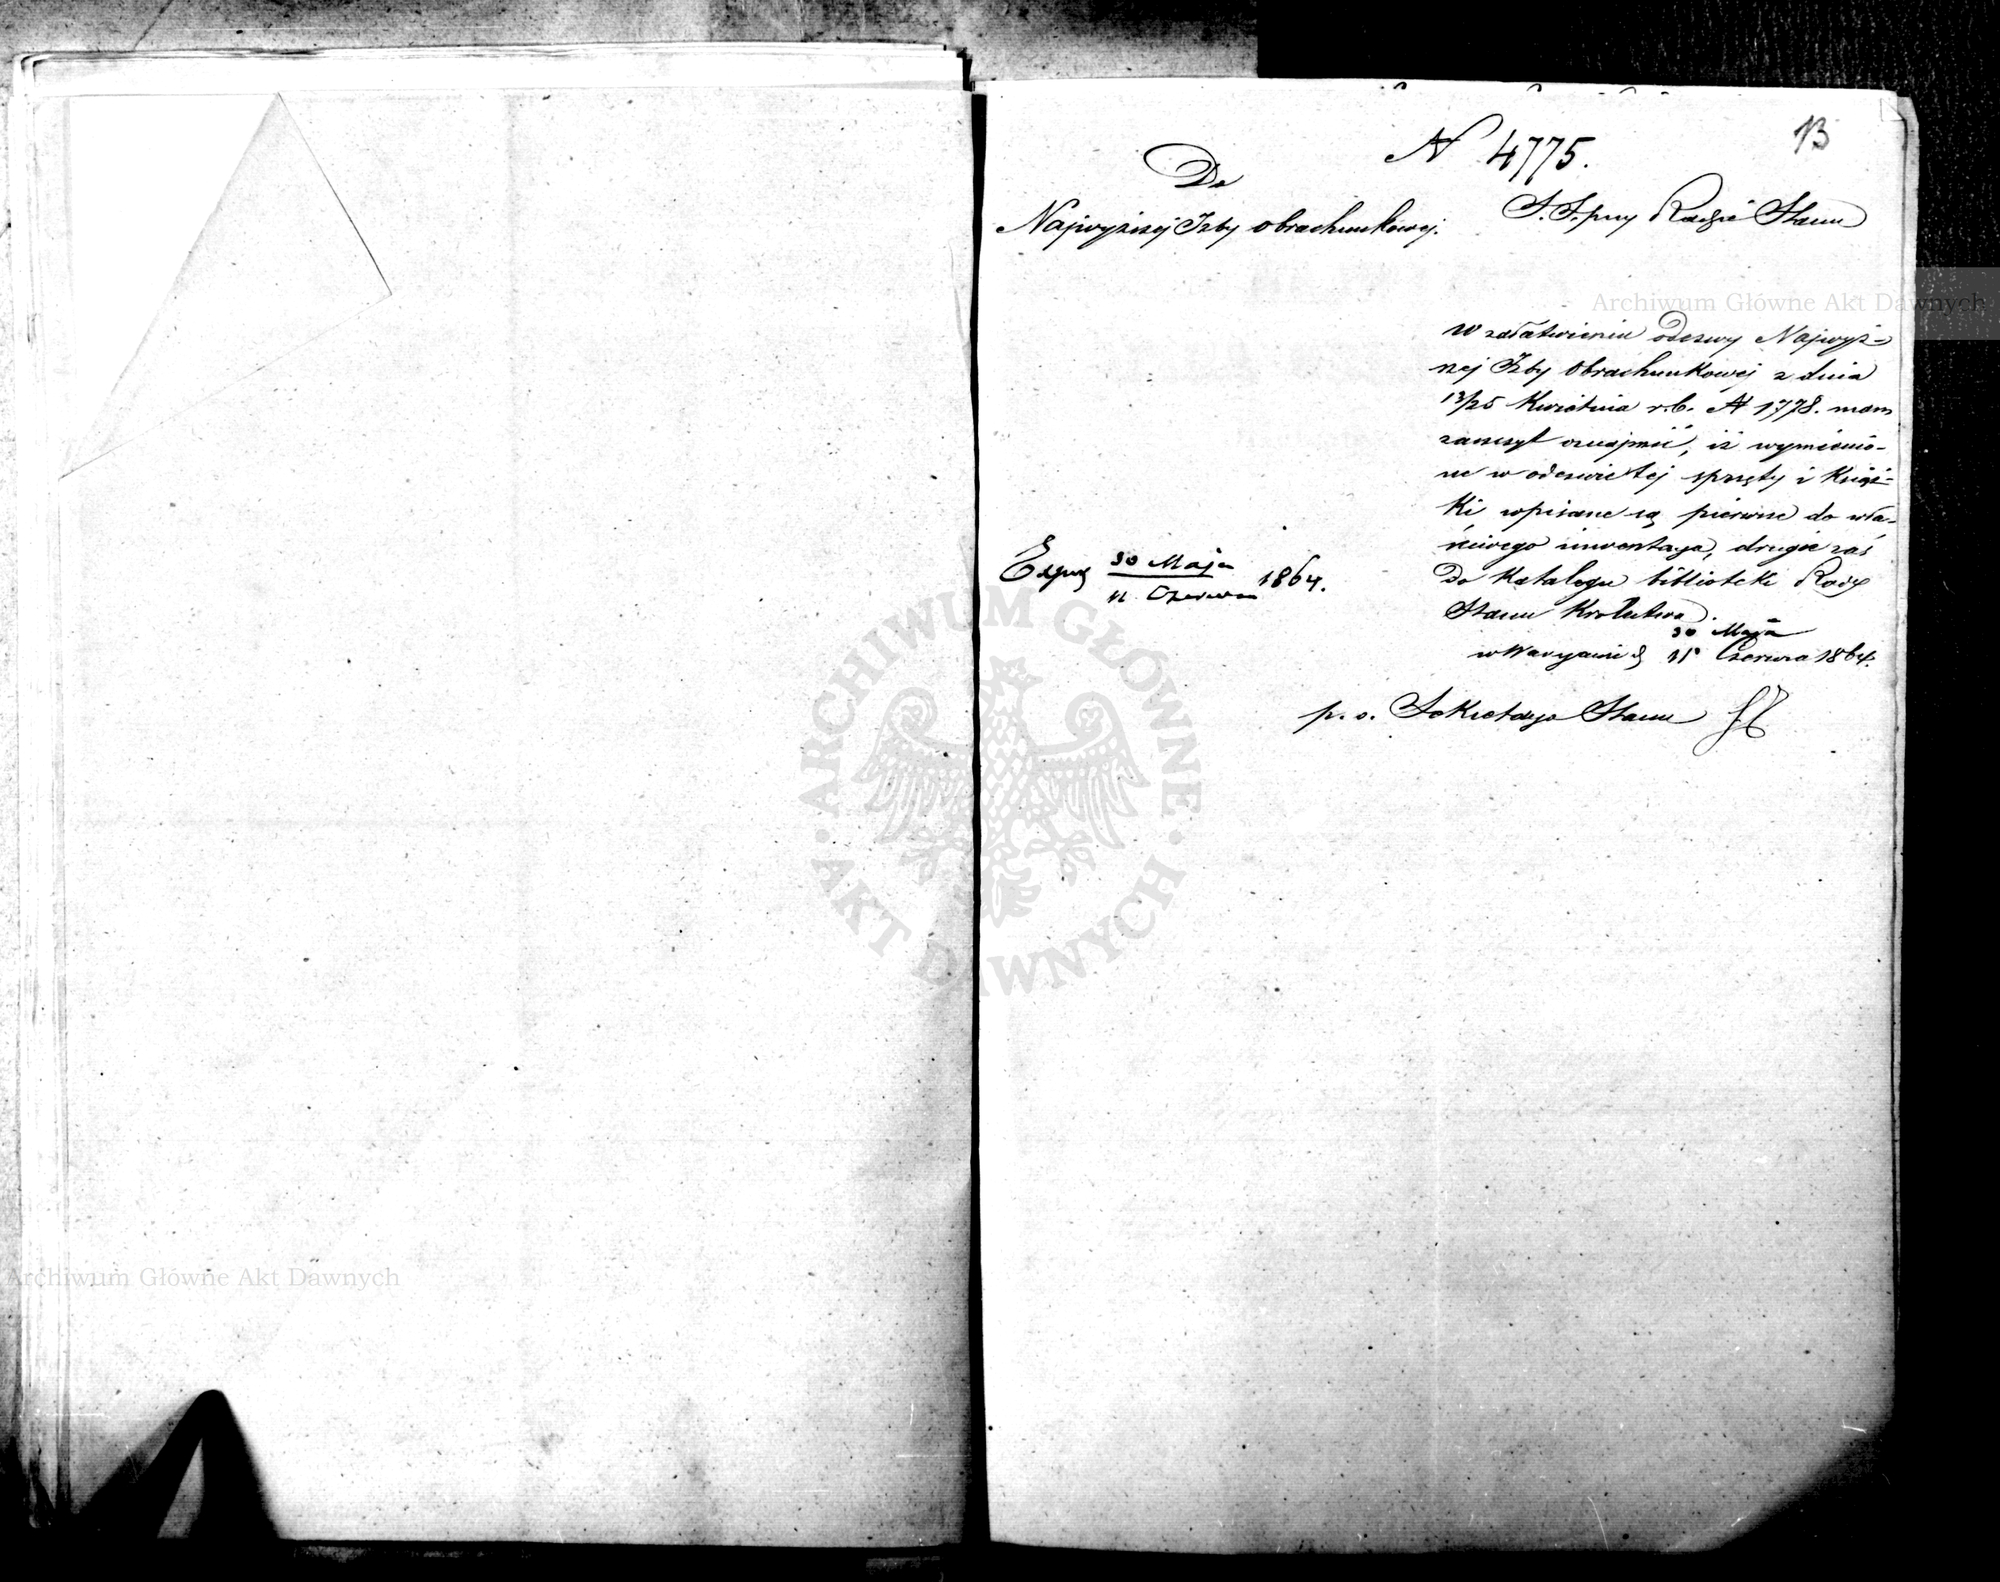 13
N 4775.
Do
Najwyższej Izby obrachunkowej.
S. S. przy Radzie Stanu
W załatwieniu odezwy Najwyż-
szej Izby Obrachunkowej z dnia
13/25 Kwietnia r.b. N 1778. mam
zaszczyt oznajmić, iż wymienio-
ne w odezwie tej sprzęty i Książ-
ki wpisane są pierwsze do wła-
ściwego inwentarza, drugie zaś
Do Katalogu biblioteki Rady
Stanu Królestwa.
w Warszawie d 30 Maja
11 Czerwca 1864.
30 Maja
11 Czerwca 1864.
p. o. Sekretarza Stanu
Archiwum Główne Akt Dawnych
ARCHIWUM GŁÓWNE · AKT DAWNYCH ·
Archiwum Główne Akt Dawnych